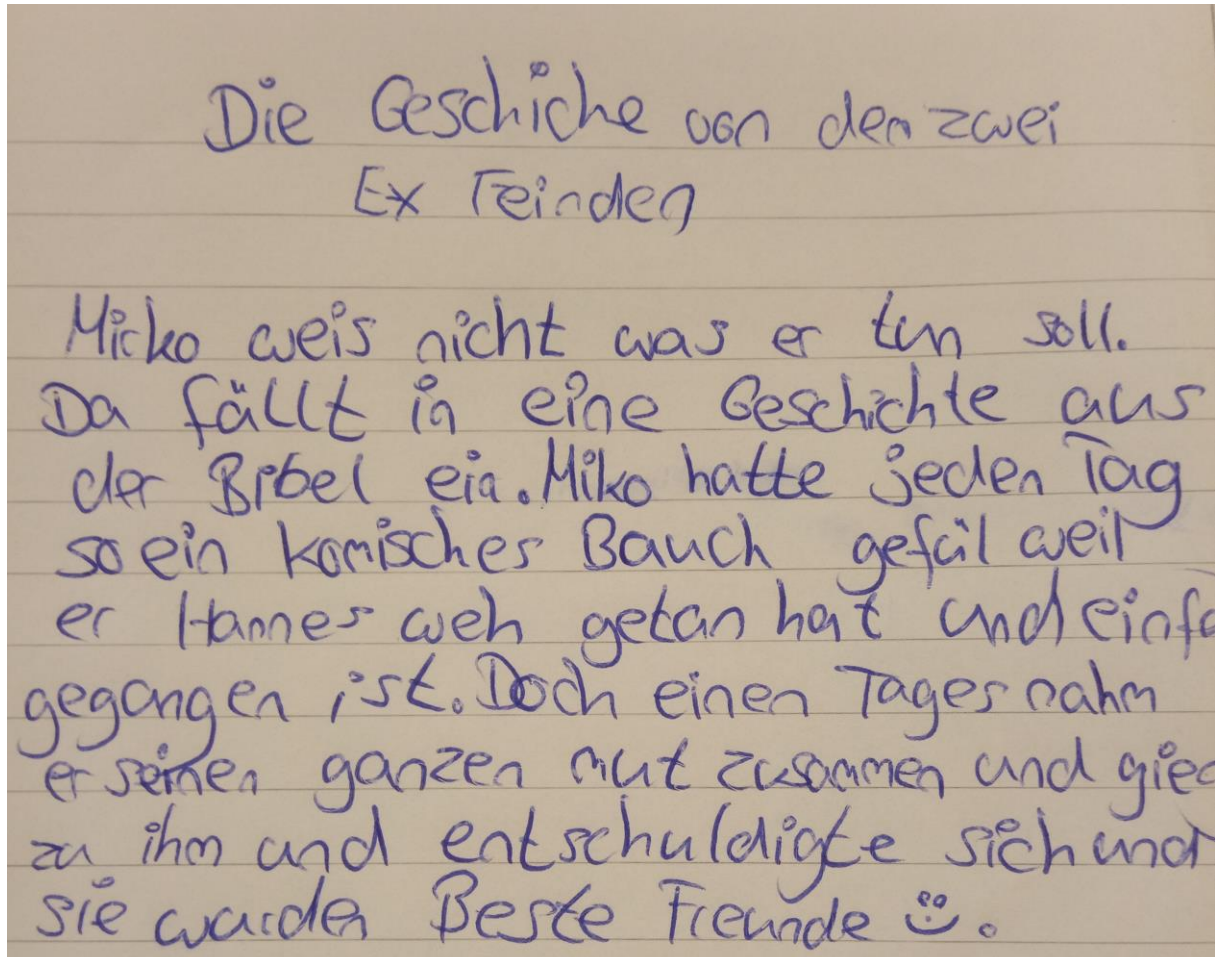 Die Geschiche von den zwei
Ex Feinden
Micko weis nicht was er tun soll.
Da fällt in eine Geschichte aus
der Bibel ein. Miko hatte jeden Tag
so ein komisches Bauch gefül weil
er Hannes weh getan hat und einfa
gegangen ist. Doch einen Tages nahm
er seinen ganzen mut zusammen und
zu ihm und entschuldigte sich und
sie wurden Beste Freunde ☺.